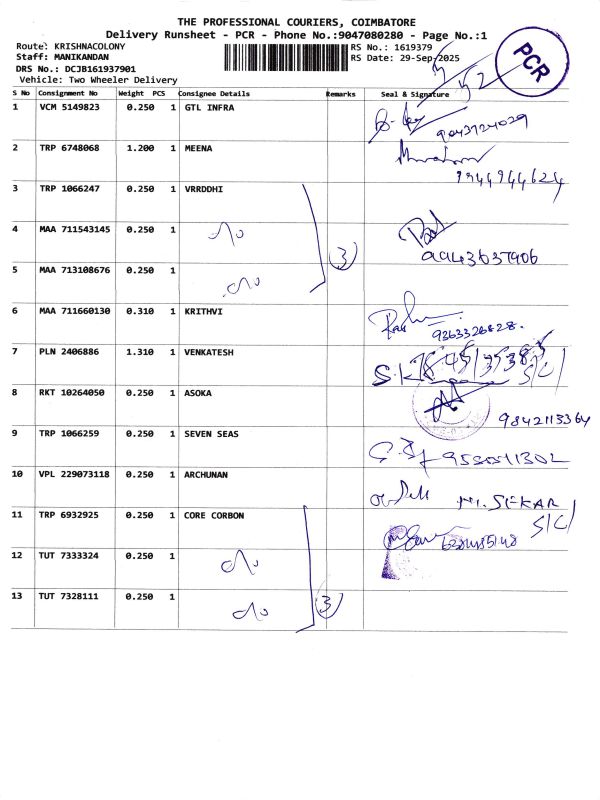 THE PROFESSIONAL COURIERS, COIMBATORE
Delivery Runsheet - PCR - Phone No.:9047080280 - Page No.:1
Route: KRISHNACOLONY RS No.: 1619379
Staff: MANIKANDAN RS Date: 29-Sep-2025
DRS No.: DCJB161937901
Vehicle: Two Wheeler Delivery
PCR
S No Consignment No Weight PCS Consignee Details Remarks Seal & Signature
1 VCM 5149823 0.250 1 GTL INFRA
9043724029
2 TRP 6748068 1.200 1 MEENA
9944944624
3 TRP 1066247 0.250 1 VRRDDHI
4 MAA 711543145 0.250 1
3
5 MAA 713108676 0.250 1
6 MAA 711660130 0.310 1 KRITHVI
9363326828.
7 PLN 2406886 1.310 1 VENKATESH
8 RKT 10264050 0.250 1 ASOKA
9842113364
9 TRP 1066259 0.250 1 SEVEN SEAS
10 VPL 229073118 0.250 1 ARCHUNAN
M. SEKAR
11 TRP 6932925 0.250 1 CORE CORBON
S/C/
12 TUT 7333324 0.250 1
13 TUT 7328111 0.250 1
3